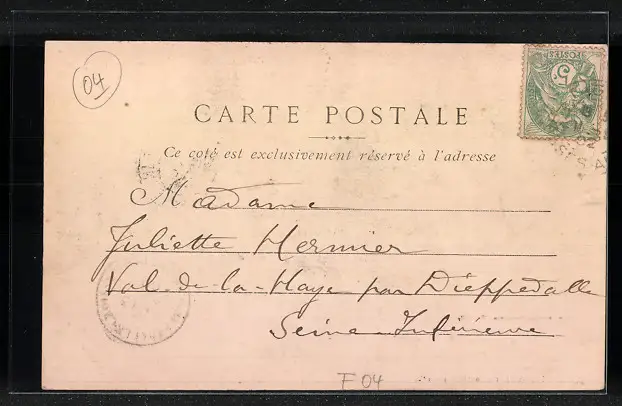 04
CARTE POSTALE
Ce coté est exclusivement réservé à l'adresse
Madame
Juliette Hermier
Val-de-la-Haye par Dieppedalle
Seine-Inférieure
F 04
POSTES
5
02